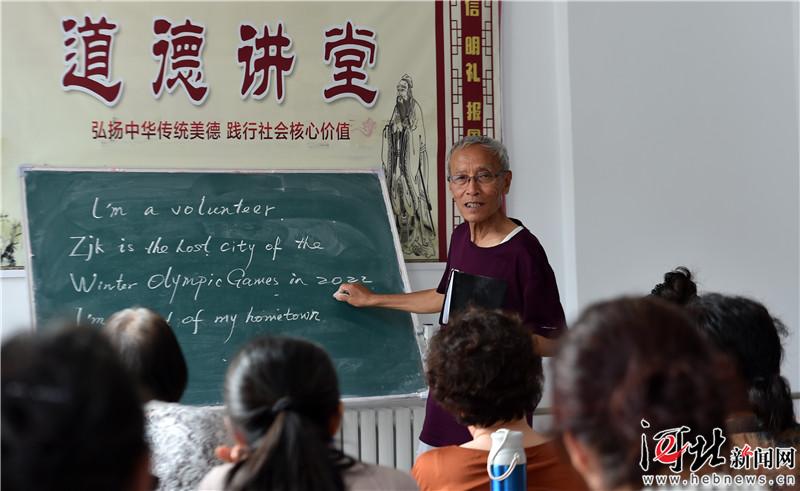 道德讲堂
信 明礼 报
弘扬中华传统美德 践行社会核心价值
I'm a volunteer.
Zjk is the host city of the
Winter Olympic Games in 2022
I'm of my hometown
河北新闻网
www.hebnews.cn